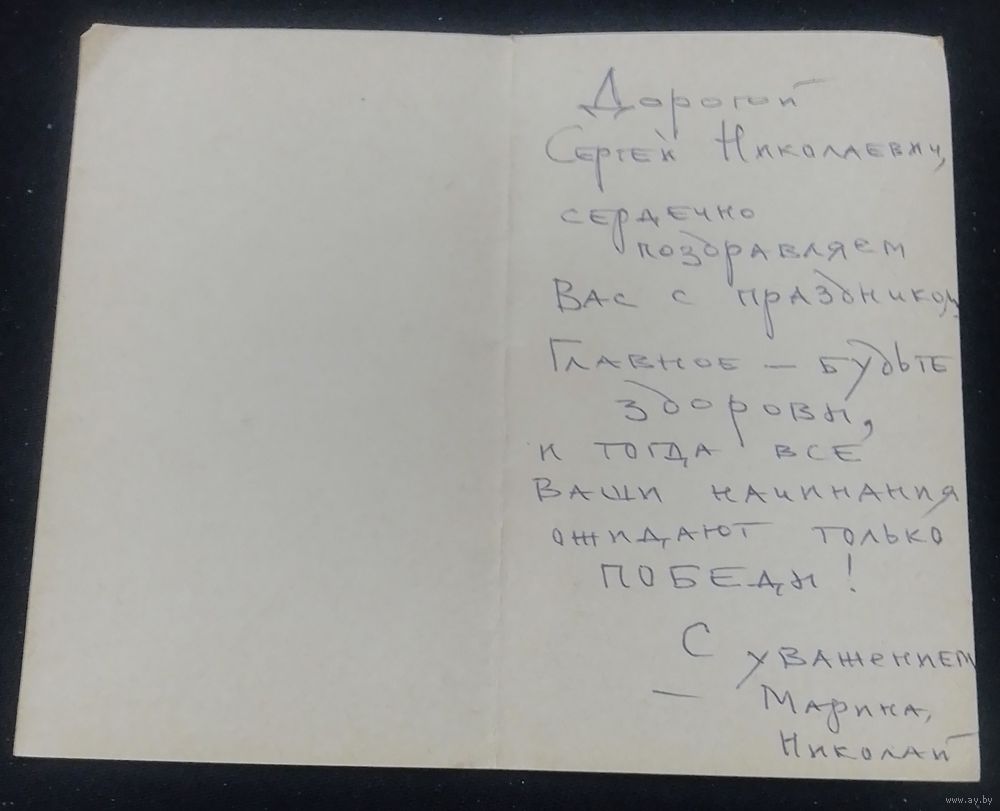 Дорогой
Сергей Николаевич,
сердечно
поздравляем
Вас с праздником
Главное — будьте
здоровы,
и тогда все
Ваши начинания
ожидают только
ПОБЕДЫ!
С уважением
— Марина,
Николай
www.ay.by